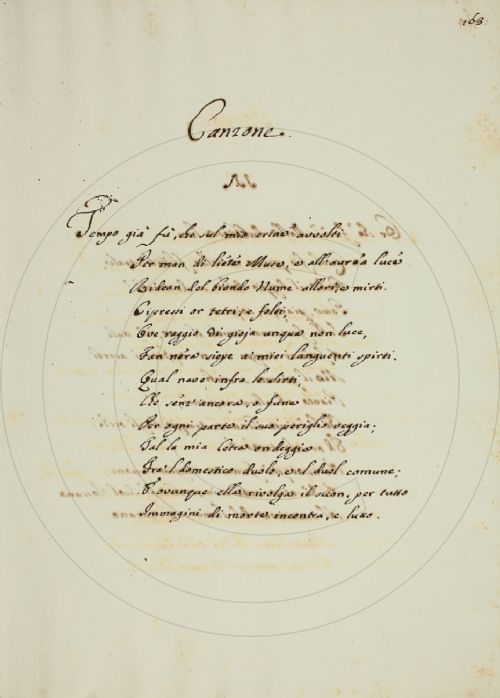 168
Canzone.
Tempo già fù, che sul mio crine avvolti
Per man di liete Muse, e all'aurea luce
Ridean del biondo Nume allori, e mirti.
Cipressi or tetri, e folti,
Ove raggio di gioja unqua non luce,
Fan nera siepe a' miei languenti spirti.
Qual nave infra le sirti,
Che senz' ancora, o fune
Per ogni parte il suo periglio veggia;
Tal la mia cetra ondeggia
Fra 'l domestico duolo, e 'l duol comune;
E ovunque ella rivolga il suon, per tutto
Immagini di morte incontra, e lutto.